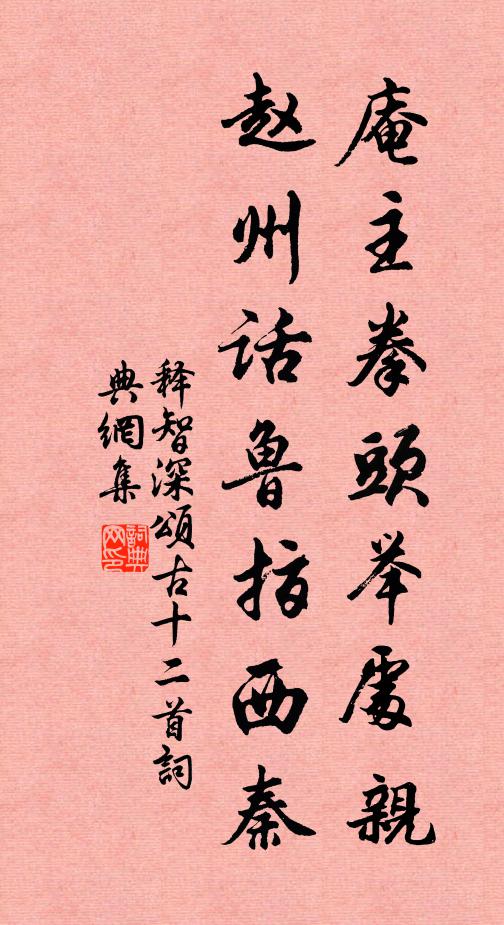 庵主拳頭举處親
赵州话鲁指西秦
释智深頌古十二首詞
典網集
詞典网印